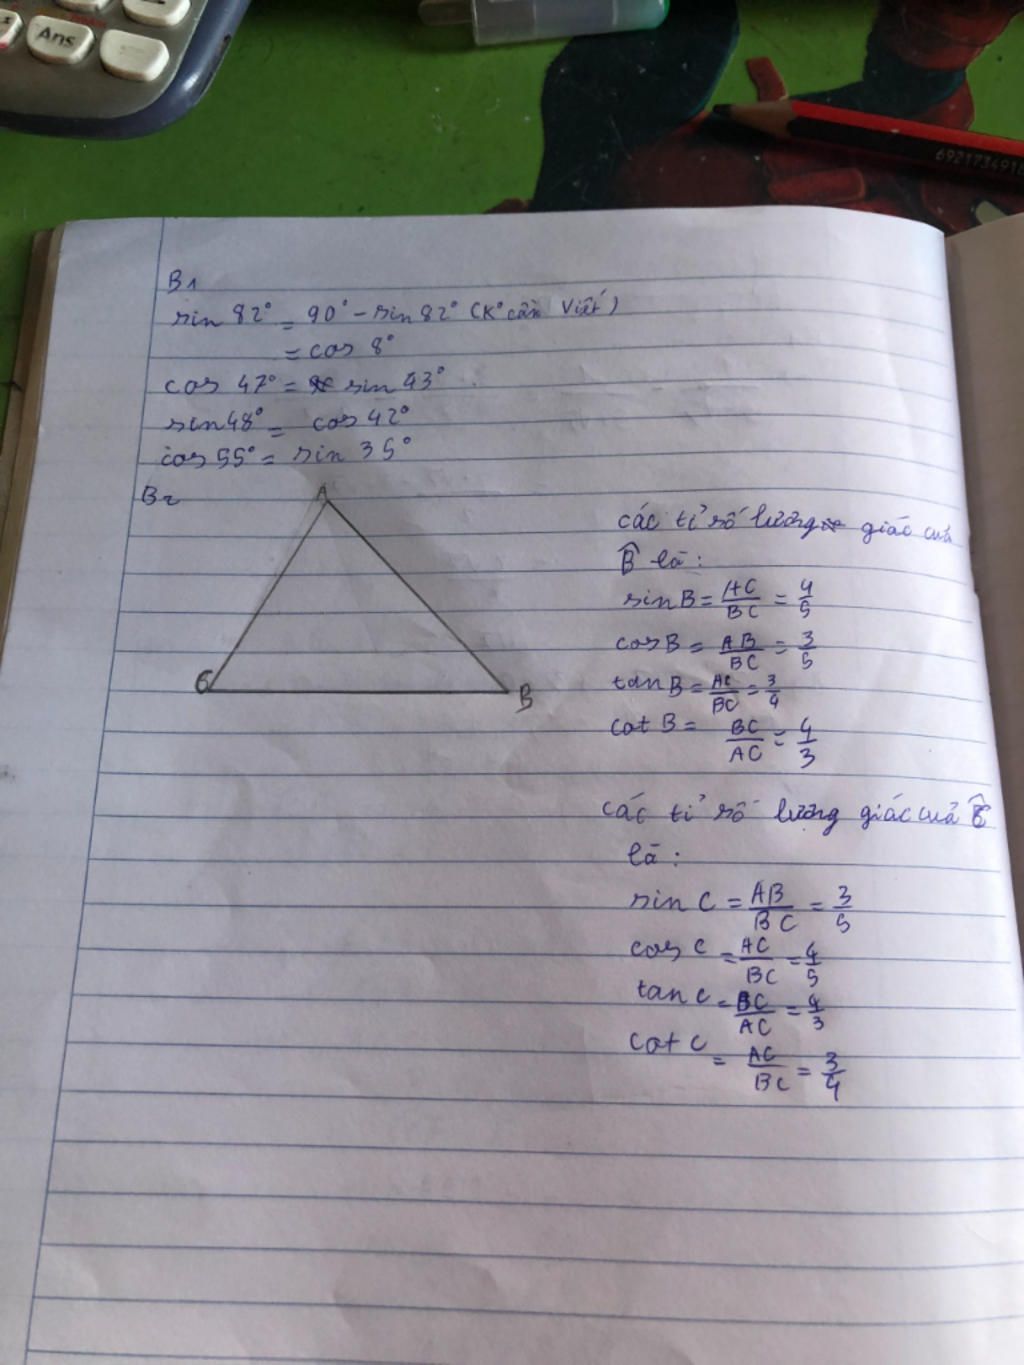 Ans
692173491
B1
sin 82° = 90° - sin 82° (K° cần Viết)
= cos 8°
cos 47° = sin 43°
sin 48° = cos 42°
cos 55° = sin 35°
B2
A
C
B
các tỉ số lượng giác của
B̂ là:
sin B = AC/BC = 4/5
cos B = AB/BC = 3/5
tan B = AC/BC = 3/4
cot B = BC/AC = 4/3
các tỉ số lượng giác của Ĉ
là:
sin C = AB/BC = 3/5
cos C = AC/BC = 4/5
tan C = BC/AC = 4/3
cot C = AC/BC = 3/4